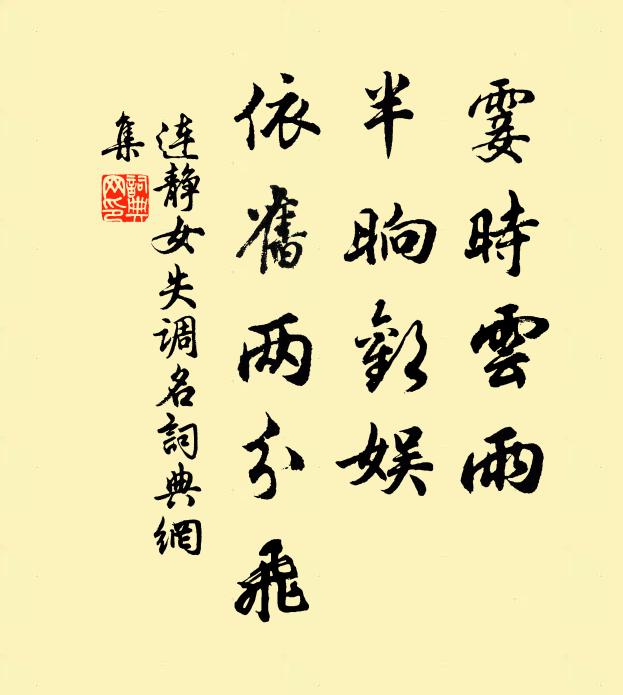 霎時雲雨
半晌歡娛
依舊兩分飛
連靜女失調名詞典網
集
詞典網印